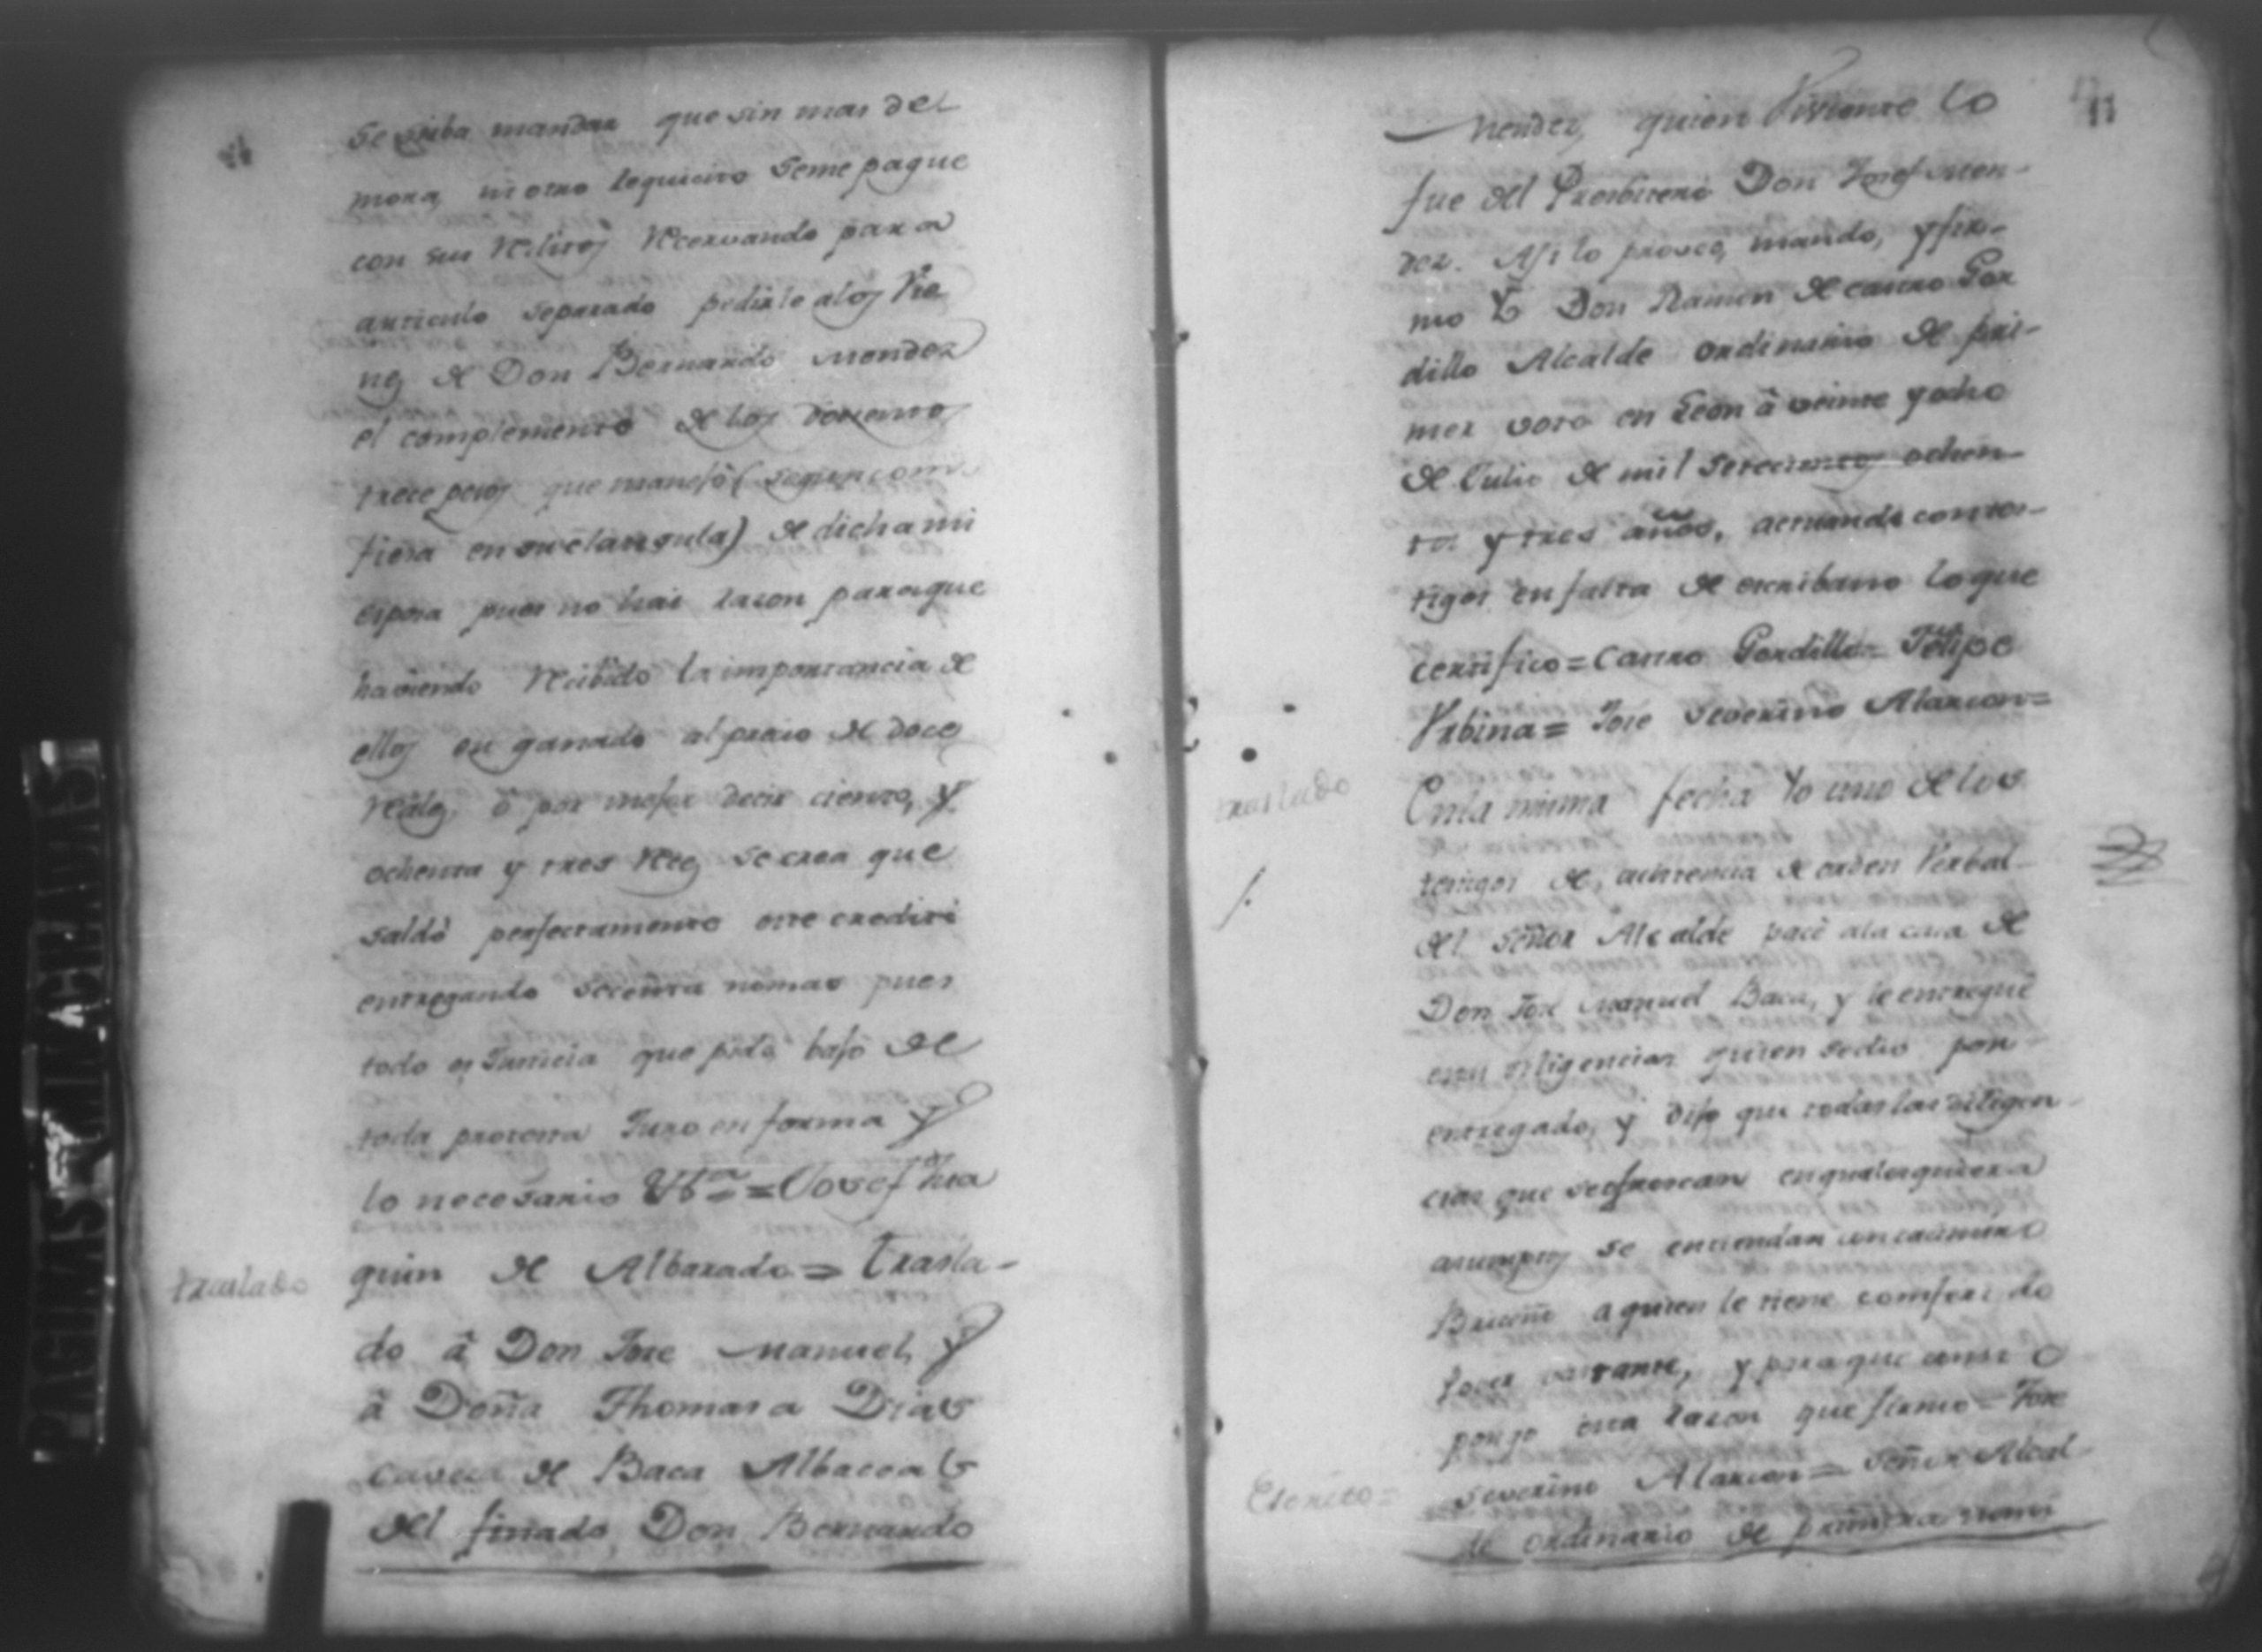 se sirba mandar que sin mas del
mora, ni otro requicito se me pague
con sus reditos recervando para
articulo separado pedirle a los vie
nes de Don Bernardo Mendez
el complemento de los docientos
trece pesos que manejó (segun com
fiesa en su clausula) de dicha mi
esposa pues no hai razon para que
haviendo recibido la importancia de
ellos en ganado al precio de doce
reales, ô por mejor decir ciento, y
ochenta y tres reses se crea que
saldó perfectamente este credito
entregando setenta nomas pues
todo es Justicia que pido bajo de
toda protesta Juro en forma y
lo necesario Vt.ª = Josef Jua
quin de Albarado = Trasla-
traslado
do â Don Jose Manuel, y
â Doña Thomasa Dias
Caveza de Baca Albaceas
del finado Don Bernardo
11
Mendez, quien viviente lo
fue del Presbitero Don Josef Men-
dez. Asi lo proveo, mando, y fir-
mo Yo Don Ramon de Castro Gor
dillo Alcalde ordinario de pri-
mer voto en Leon â veinte y ocho
de Julio de mil setecientos ochen-
ta y tres años, actuando con tes-
tigos en falta de escribano lo que
certifico = Castro Gordillo = Felipe
Vrbina = Jose Severino Alarcon =
traslado
En la misma fecha Yo uno de los
testigos de asistencia de orden verbal
del Señor Alcalde pasé a la casa de
Don Jose Manuel Baca, y le entregué
estas diligencias quien se dio por
entregado, y dijo que todas las diligen-
cias que se ofrescan en qualesquiera
asumptos se entiendan con Casimiro
Briceño a quien le tiene comferido
poder vastante, y para que conste
pongo esta razon que firmo = Jose
Severino Alarcon = Señor Alcal-
Escrito =
de ordinario de primera nomi